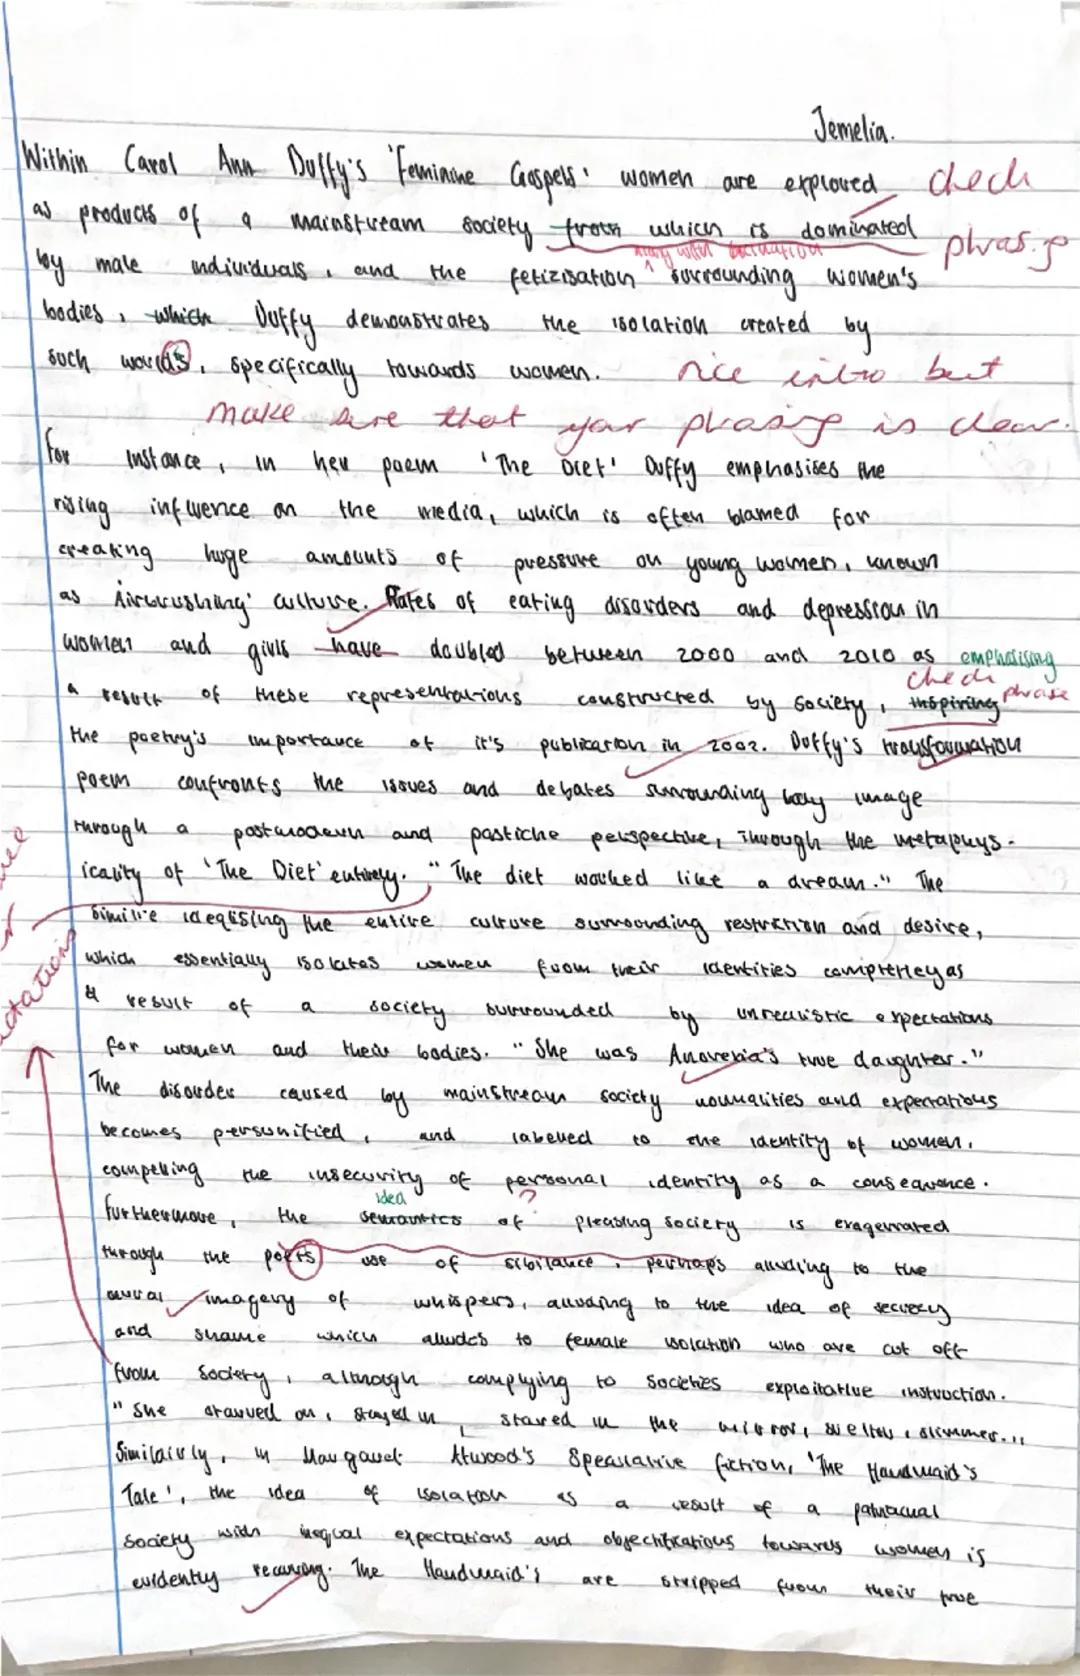 Jemelia.
Within Carol Ann Duffy's 'Feminine Gospels' women are explored check
as products of a mainstream society from which is dominated phrasing
along with
by male individuals, and the fetizisation surrounding women's
bodies, which Duffy demonstrates the isolation created by
such worlds, specifically towards women. nice intro but
make sure that your phrasing is clear.
For instance, in her poem 'The Diet' Duffy emphasises the
rising influence on the media, which is often blamed for
creating huge amounts of pressure on young women, known
as Airbrushing' culture. Rates of eating disorders and depression in
women and girls have doubled between 2000 and 2010 as emphasising
check phrase
a result of these representations constructed by society, inspiring
the poetry's importance at it's publication in 2002. Duffy's transformation
poem confronts the issues and debates surrounding body image
through a postmodern and pastiche perspective, through the metaphys-
icality of 'The Diet' entirely. "The diet worked like a dream." The
Similie idealising the entire culture surrounding restriction and desire,
which essentially isolates women from their identities completley as
a result of a society surrounded by unrealistic expectations
for women and their bodies. "She was Anorexia's true daughter."
The disorder caused by mainstream society normalities and expectations
becomes personified, and labelled to the identity of women,
compelling the insecurity of personal identity as a consequence.
idea ?
Furthermore, the semantics of pleasing society is exagerrated
through the poets use of sibilance, perhaps alluding to the
aural imagery of whispers, alluding to the idea of secrecy
and shame which alludes to female isolation who are cut off
from society, although complying to societies exploitative instruction.
"She starved on, stayed in, stared in the mirror, svelter, slimmer..."
Similairly, in Margaret Atwood's Speculative fiction, 'The Handmaid's
Tale', the idea of isolation as a result of a patriacual
society with inequal expectations and objectifications towards women is
evidently recurring. The Handmaid's are stripped from their true